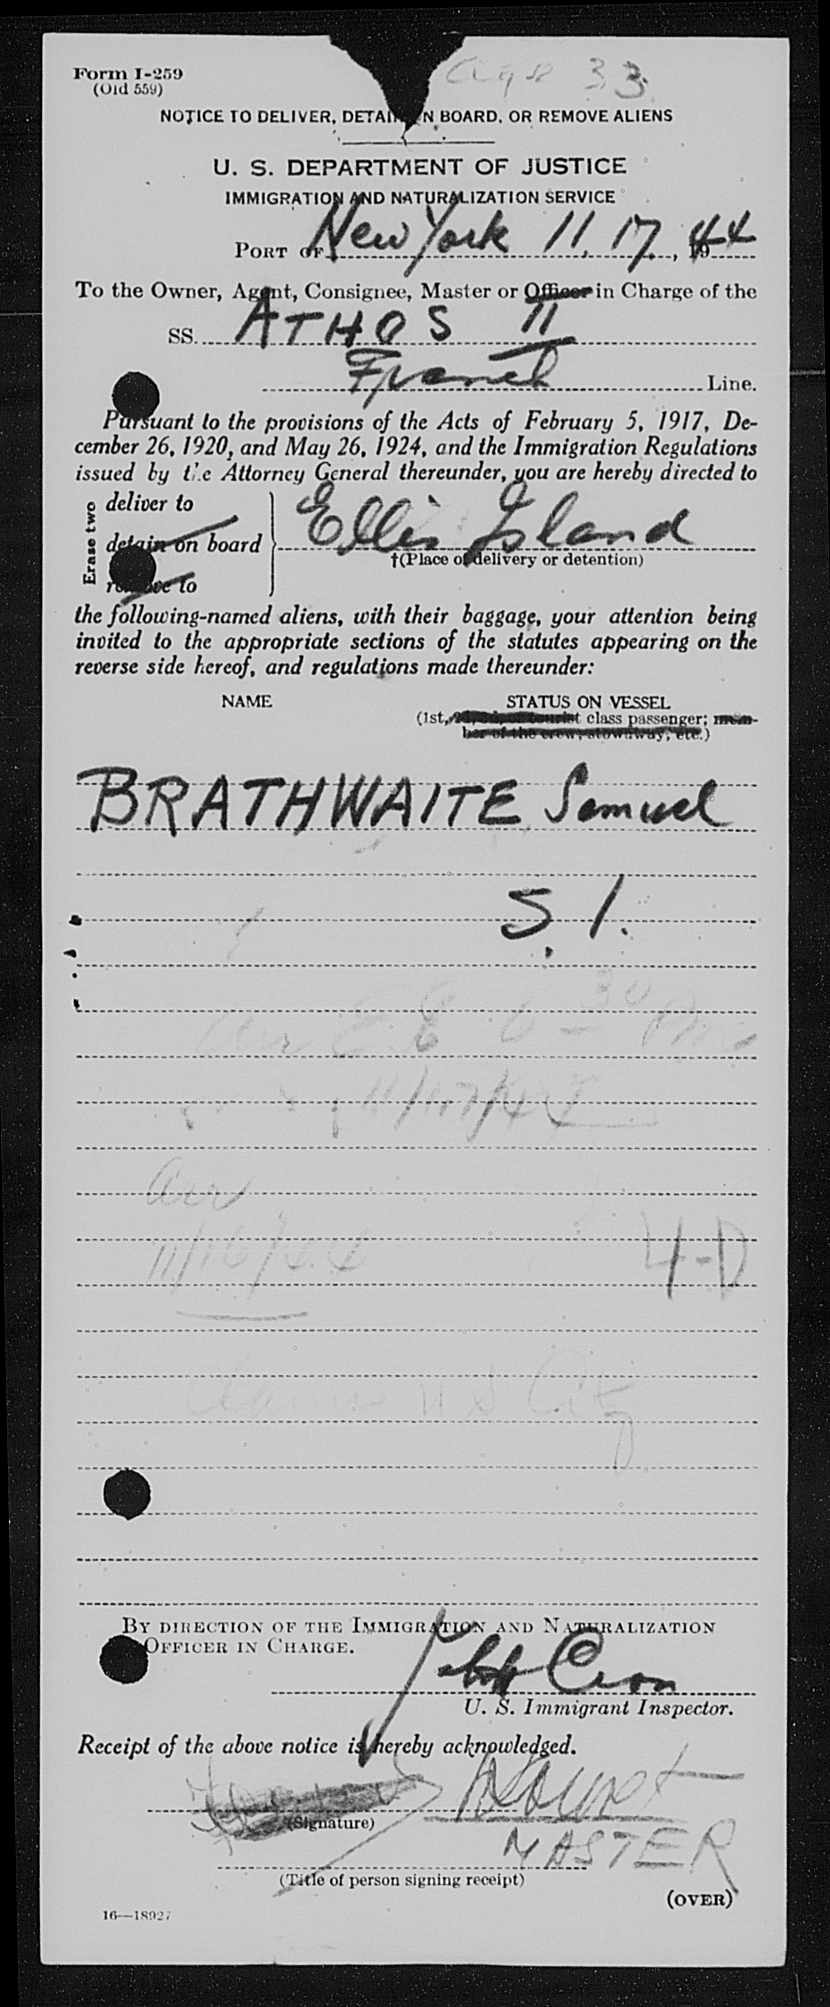 Form I-259
(Old 559)
Age 33
NOTICE TO DELIVER, DETAIN ON BOARD, OR REMOVE ALIENS
U. S. DEPARTMENT OF JUSTICE
IMMIGRATION AND NATURALIZATION SERVICE
PORT OF New York 11. 17, 1944
To the Owner, Agent, Consignee, Master or Officer in Charge of the
SS. ATHOS II
French Line.
Pursuant to the provisions of the Acts of February 5, 1917, De-
cember 26, 1920, and May 26, 1924, and the Immigration Regulations
issued by the Attorney General thereunder, you are hereby directed to
Erase two
deliver to
detain on board
remove to
Ellis Island
†(Place of delivery or detention)
the following-named aliens, with their baggage, your attention being
invited to the appropriate sections of the statutes appearing on the
reverse side hereof, and regulations made thereunder:
NAME STATUS ON VESSEL
(1st, 2d, 3d, or tourist class passenger; mem-
ber of the crew, stowaway, etc.)
BRATHWAITE, Samuel
S. I.
Arr E. I. 6-30 PM
11/17/44
Arr
11/16/44
4-D
Claims U S Cit
BY DIRECTION OF THE IMMIGRATION AND NATURALIZATION
OFFICER IN CHARGE.
U. S. Immigrant Inspector.
Receipt of the above notice is hereby acknowledged.
(Signature)
MASTER
(Title of person signing receipt)
(OVER)
16—18927